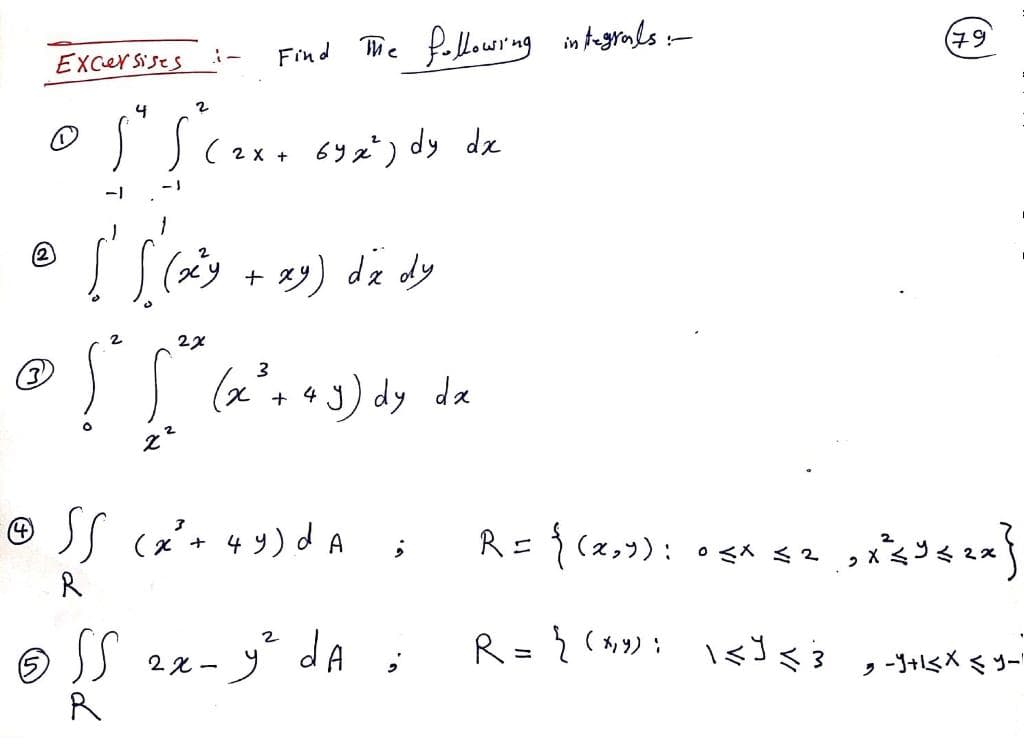 Excersises :- Find The following integrals :- 79
① ∫₋₁⁴ ∫₋₁² (2x + 6yx²) dy dx
② ∫₀¹ ∫₀¹ (x²y + xy) dx dy
③ ∫₀² ∫_{x²}^{2x} (x³ + 4y) dy dx
④ ∬_R (x³ + 4y) dA ; R = {(x,y): 0 ≤ x ≤ 2 , x² ≤ y ≤ 2x}
⑤ ∬_R 2x - y² dA ; R = {(x,y): 1 ≤ y ≤ 3 , -y+1 ≤ x ≤ y-1